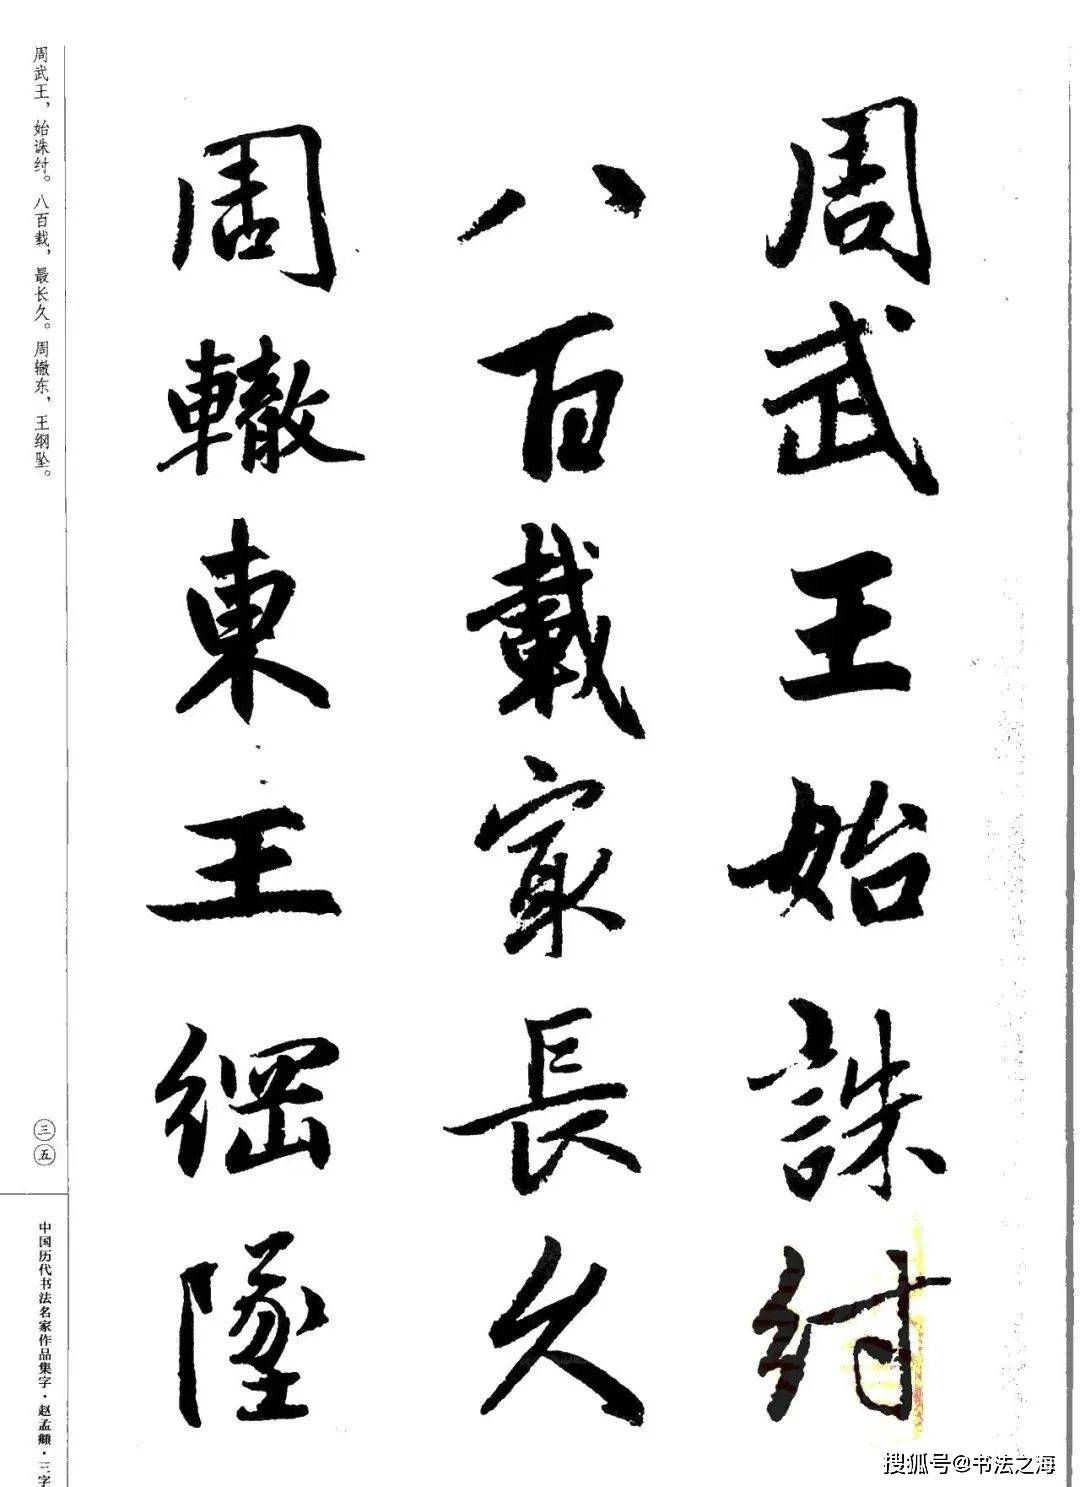 周武王始誅紂
八百載冣長久
周轍東王綱墜
周武王，始诛纣。八百载，最长久。周辙东，王纲坠。
三五
中国历代书法名家作品集字·赵孟頫·三字
搜狐号@书法之海